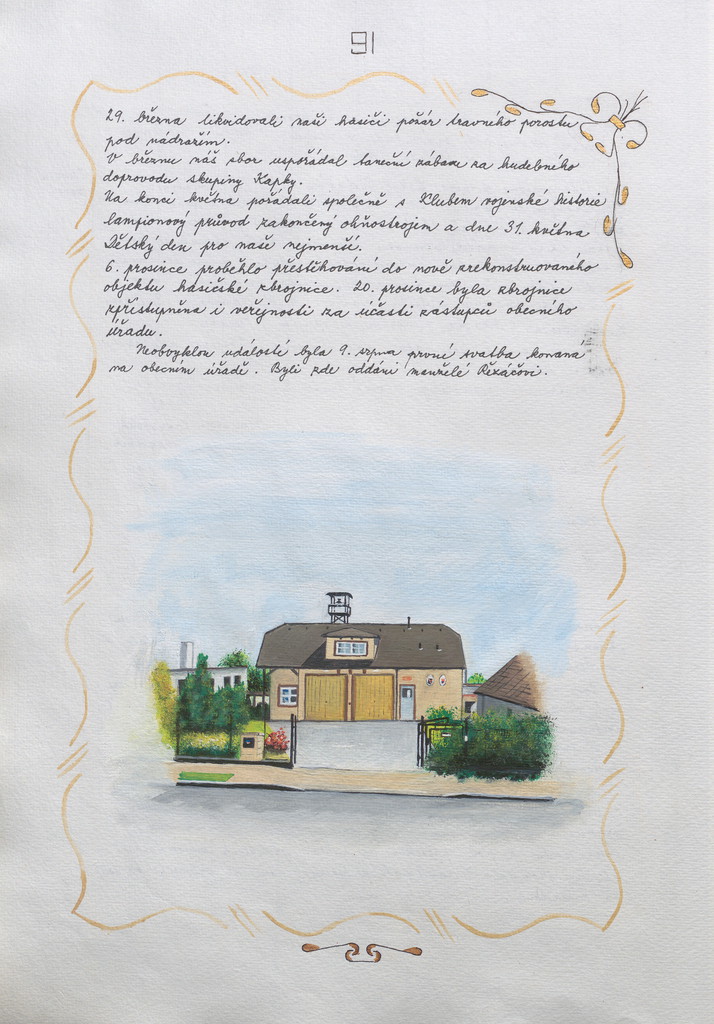 91
29. března likvidovali naši hasiči požár travného porostu
pod nádražím.
V březnu náš sbor uspořádal taneční zábavu za hudebního
doprovodu skupiny Kapky.
Na konci května pořádali společně s Klubem vojenské historie
lampionový průvod zakončený ohňostrojem a dne 31. května
Dětský den pro naše nejmenší.
6. prosince proběhlo přestěhování do nově zrekonstruovaného
objektu hasičské zbrojnice. 20. prosince byla zbrojnice
zpřístupněna i veřejnosti za účasti zástupců obecného
úřadu.
Neobvyklou událostí byla 9. srpna první svatba konaná
na obecním úřadě. Byli zde oddáni manželé Řezáčovi.